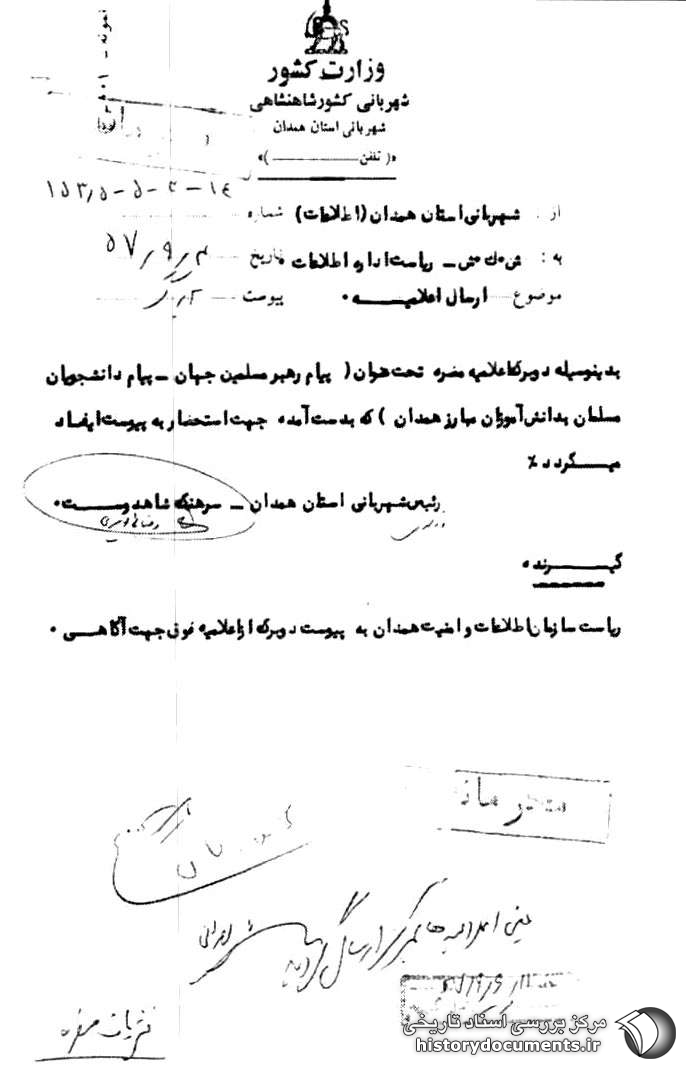 نمونه -
وزارت کشور
شهربانی کشور شاهنشاهی
شهربانی استان همدان
«( تلفن ــــــــ )»
از : شهربانی استان همدان (اطلاعات) شماره ۱۴-۲-۵-۱۵۳٫۵
به : ریاست اداره اطلاعات تاریخ ۵۷٫۹٫
موضوع ارسال اعلامیـــه ۰ پیوست ۲ برگ
بدینوسیله دو برگ اعلامیه مضره تحت عنوان ( پیام رهبر مسلمین جهان ــ پیام دانشجویان
مسلمان بدانش آموزان مبارز همدان ) که بدست آمده جهت استحضار به پیوست ایفــاد
میــگردد ٪
رئیس شهربانی استان همدان ــ سرهنگ شاهد وســـت۰
گیــــرنده
ریاست سازمان اطلاعات و امنیت همدان به پیوست دو برگ از اعلامیه فوق جهت آگاهـــی ۰
عین اعلامیه ها بمرکز ارسال گردد
نشریات مضره
مرکز بررسی اسناد تاریخی
historydocuments.ir